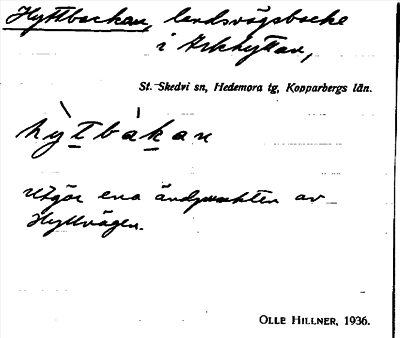 Hyttbackan, landsvägsbacke
i Arkhyttan,
St. Skedvi sn, Hedemora tg, Kopparbergs län.
hỳtbákan
Utgör ena ändpunkten av
Hyttvägen.
OLLE HILLNER, 1936.